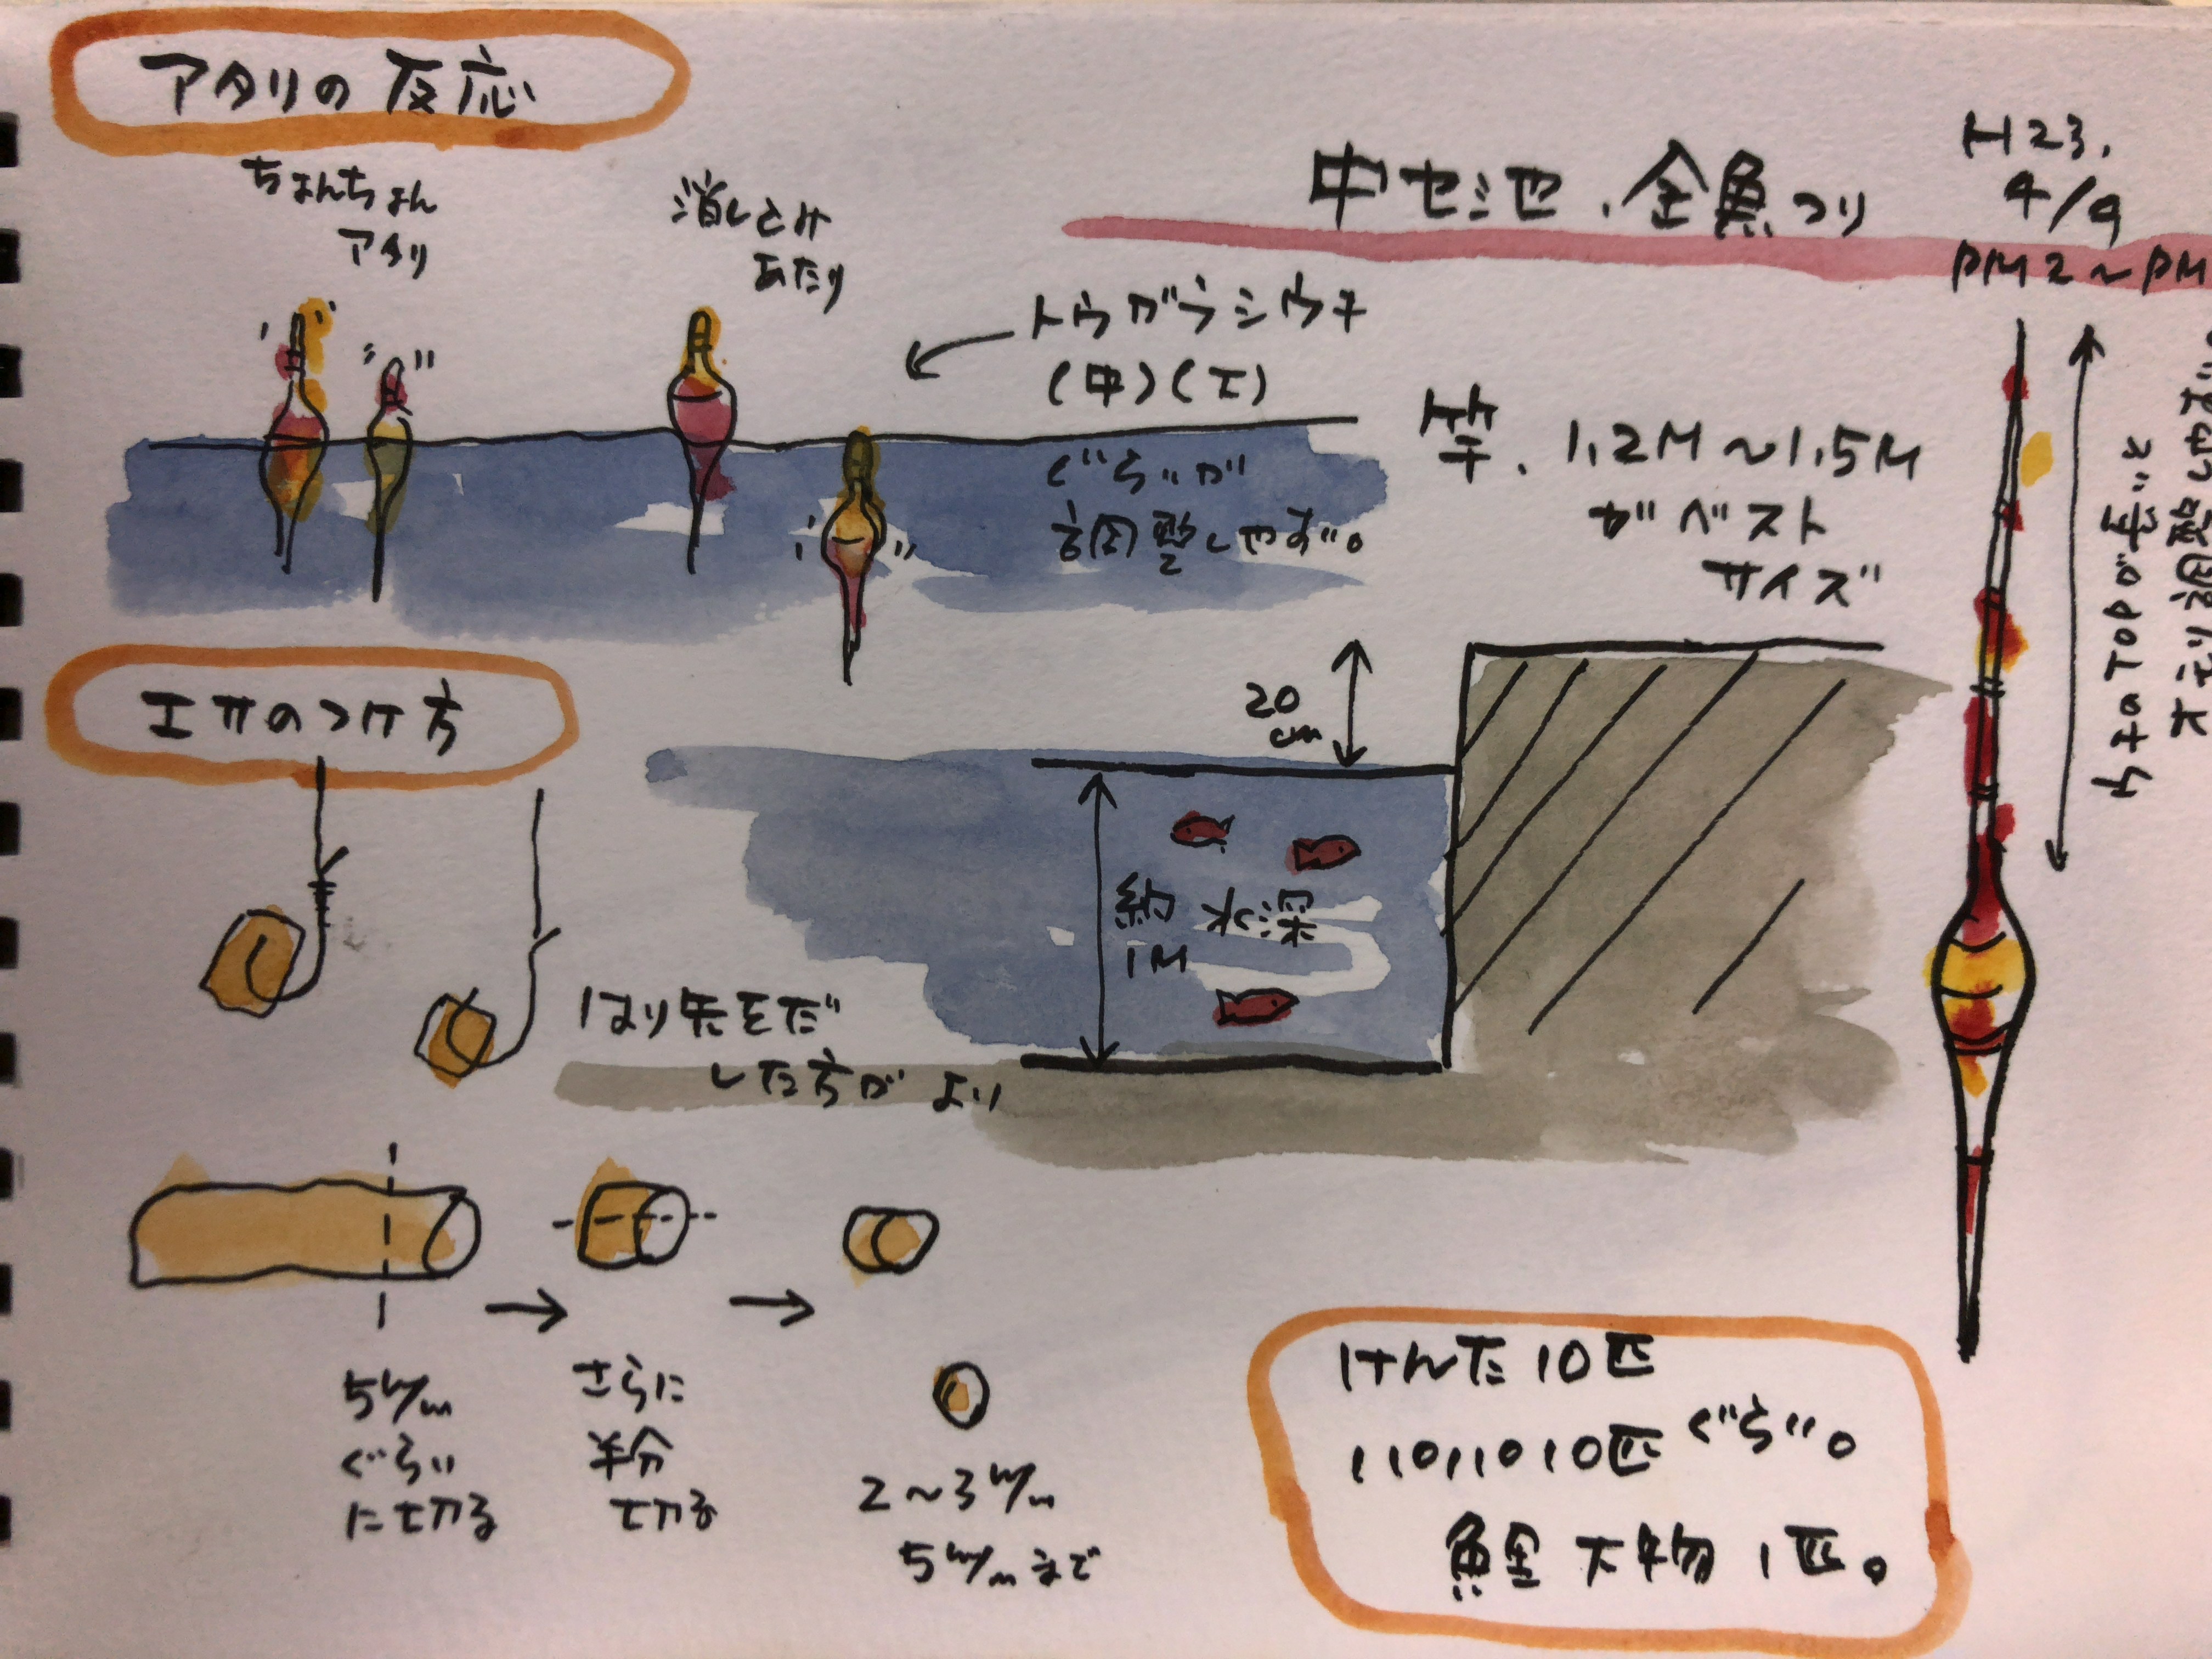 アタリの反応
ちょんちょん
アタリ
消しこみ
あたり
トウガラシウキ
(中)(小)
ぐらいが
調整しやすい。
中セミ池、金魚つり
H23.
4/9
PM2～PM
竿、1.2M～1.5M
がベスト
サイズ
ウキのTOPが長いと
調整しやすい。
エサのつけ方
はり先をだ
した方がよい
20
cm
約 水深
1M
5m/m
ぐらい
に切る
さらに
半分
切る
2～3m/m
5m/mまで
けんた10匹
パパ10匹ぐらい。
大物1匹。